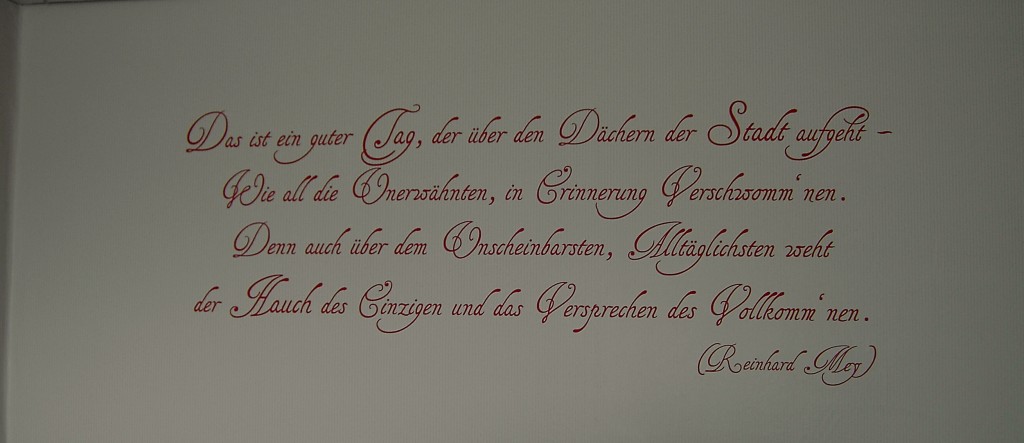 Das ist ein guter Tag, der über den Dächern der Stadt aufgeht –
Wie all die Unerwähnten, in Erinnerung Verschwomm‘nen.
Denn auch über dem Unscheinbarsten, Alltäglichsten weht
der Hauch des Einzigen und das Versprechen des Vollkomm‘nen.
(Reinhard Mey)